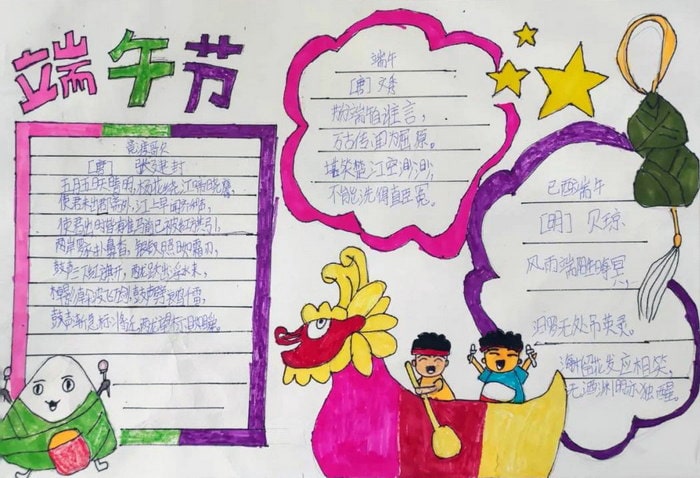 端午节
竞渡歌
[唐] 张建封
五月五日天晴明,杨花绕江啼晓鹃。
使君未出郡斋外,江上早闻齐和声。
使君出时皆有准,马前已被红旗引。
两岸罗衣扑鼻香,银钗照日如霜刃。
鼓声三下红旗开,两龙跃出浮水来。
棹影斡波飞万剑,鼓声劈浪鸣千雷。
鼓声渐急标将近,两龙望标目如瞬。
端午
[唐] 文秀
端自谁言,
万古传闻为屈原。
堪笑楚江空渺渺,
不能洗得直臣冤。
己酉端午
[明] 贝琼
风雨端阳生晦冥
汨罗无处吊英灵。
海榴花发应相笑,
无酒渊明亦独醒。